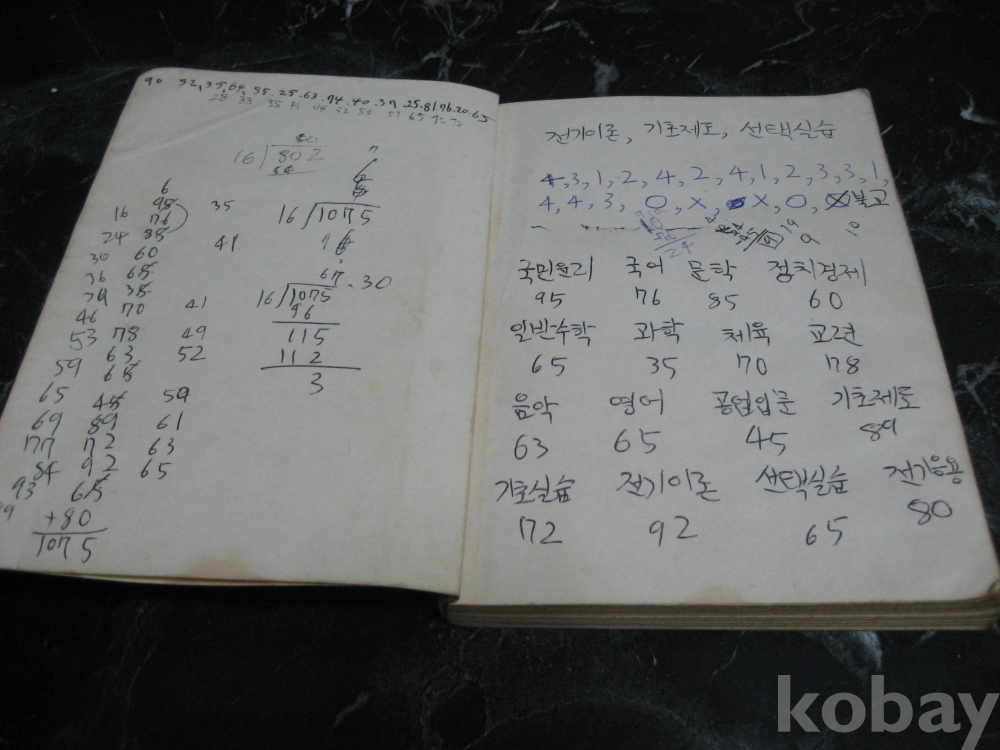 90 52, 35, 64, 55. 25. 63. 74. 40. 37. 25. 81. 76. 20. 65
28 33 35 41
16 802
16 1075
67.30
16 1075
96
115
112
3
6
95
16 76 35
24 85
30 60 41
36 65
38
46 70 41
53 78 49
59 63 52
65
65 45 59
69 89 61
77 72 63
84 92 65
93 65
99 +80
1075
전기이론, 기초제도, 선택실습
4, 3, 1, 2, 4, 2, 4, 1, 2, 3, 3, 1,
4, 4, 3, O, X, X, O, X
24 9 10
국민윤리 국어 문학 정치경제
95 76 85 60
일반수학 과학 체육 교련
65 35 70 78
음악 영어 공업입문 기초제도
63 65 45 89
기초실습 전기이론 선택실습 전기응용
72 92 65 80
kobay